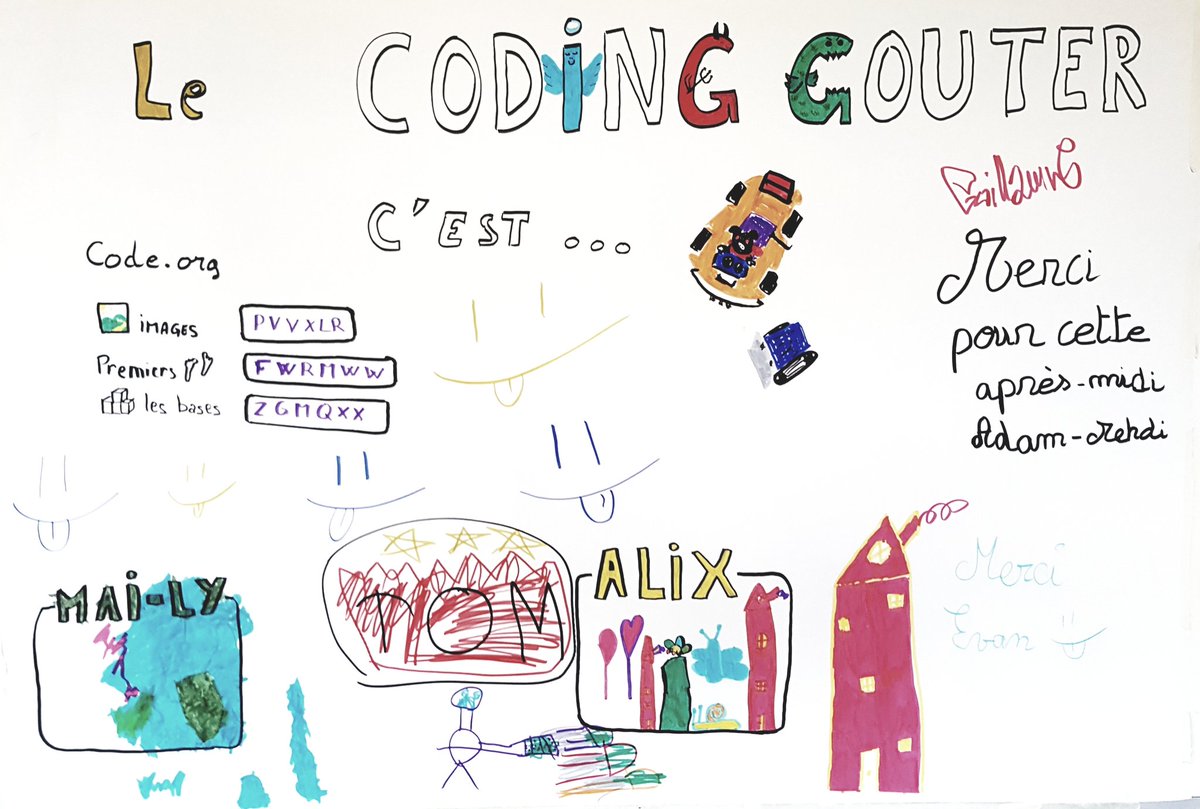 Le CODiNG GOUTER
C'EST ...
Code.org
iMAGES PVVXLR
Premiers FWRMWW
les bases ZGMQXX
Guillaume
Merci
pour cette
après-midi
Adam-Mehdi
MAi-LY
TOM
ALiX
Merci
Evan